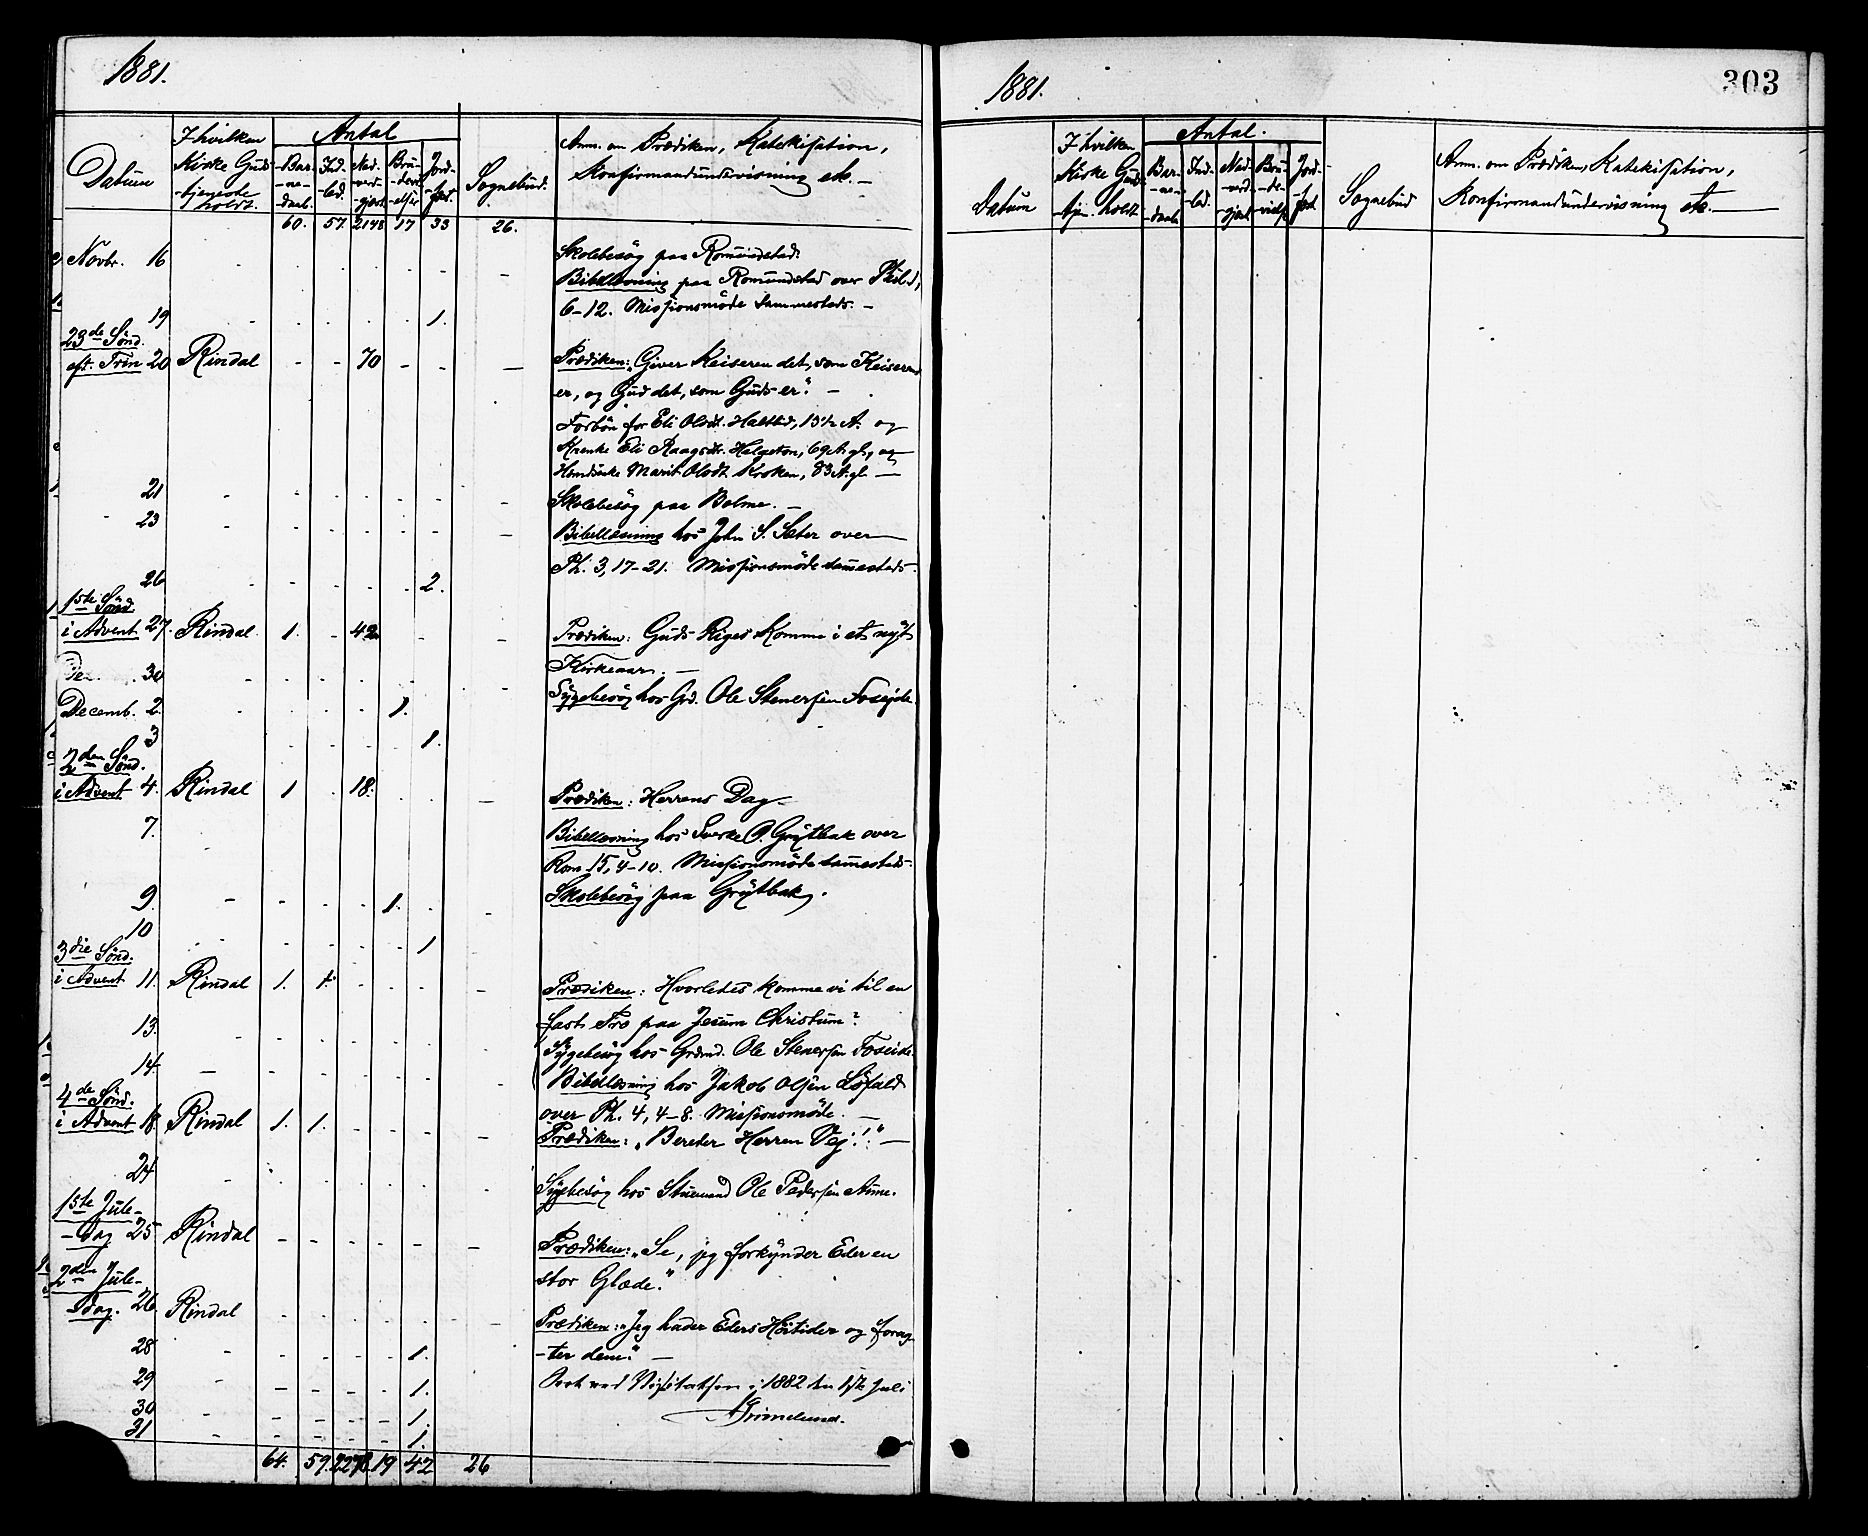 1881.
Datum
I hvilken Kirke Guds-tjeneste holdt.
Antal
Bar-ne-daab. Ind-led. Nad-verd-gjest. Bru-devi-elser Jord-fæst.
Sognebud.
Anm. om Prædiken, Katekisation,
Konfirmandundervisning etc. —
60. 57. 2148 17 33 26.
Novbr. 16 Skolebesøg paa Romundstad.
Bibellæsning paa Romundstad over Phil. 1,
6-12. Missionsmöde sammesteds. —
19 1.
23de Sönd.
eft. Trin 20 Rindal 70 Prædiken: „Giver Keiseren det, som Keiserens
er, og Gud det, som Guds er." —
Forbön for Eli Olsdt. Halstad, 13½ A. og
Kvinde Eli Haagsdtr. Helgeton, 69 A. gl., og
Marit Olsdt. Kroken, 83 A. gl. —
21 Skolebesøg paa Bolme. —
23 Bibellæsning hos John S. Sæter over
Ph. 3, 17-21. Missionsmöde sammesteds.
26 2.
1ste Sönd.
i Advent 27. Rindal. 1. 42 Prædiken: Guds Riges Komme i et nyt
Kirkeaar. —
30 Sygebesøg hos Grd. Ole Stenersen Foseide.
Decemb. 2. 1.
3 1.
2den Sönd.
i Advent 4. Rindal 1 18. Prædiken: Herrens Dag.
7. Bibellæsning hos Sverke O. Grytbak over
Rom. 15, 4-10. Missionsmöde sammesteds.
Skolebesøg paa Grytbak.
9. 1.
10 1
3die Sönd.
i Advent 11. Rindal 1. 1. Prædiken: Hvorledes komme vi til en
fast Tro paa Jesum Christum?
13. Sygebesøg hos Grdmd. Ole Stenersen Foseide.
14. Bibellæsning hos Jakob Olsen Löfald
over Ph. 4, 4-8. Missionsmöde. —
4de Sönd.
i Advent 18. Rindal 1. 1. Prædiken: „Bereder Herren Vej!" —
24 Sygebesøg hos Stuemand Ole Pedersen Aune.
1ste Jule-
-dag 25 Rindal Prædiken: „Se, jeg forkynder Eder en
stor Glæde."
2den Jule-
dag. 26. Rindal Prædiken: „Jeg hader Eders Höitider og forag-
-ter dem." —
28 1.
29 1. Seet ved Visitatsen i 1882 den 1ste Juli
30 1. Grimelund.
31 1.
64. 59. 2278. 19 42 26
1881.
303
Datum
I hvilken Kirke Guds-tjen. holdt
Antal.
Bar-ne-daab Ind-led. Nad-verd-gjest Bru-de-vielse Jord-fæst
Sognebud
Anm. om Prædiken, Katekisation,
Konfirmandundervisning etc. —